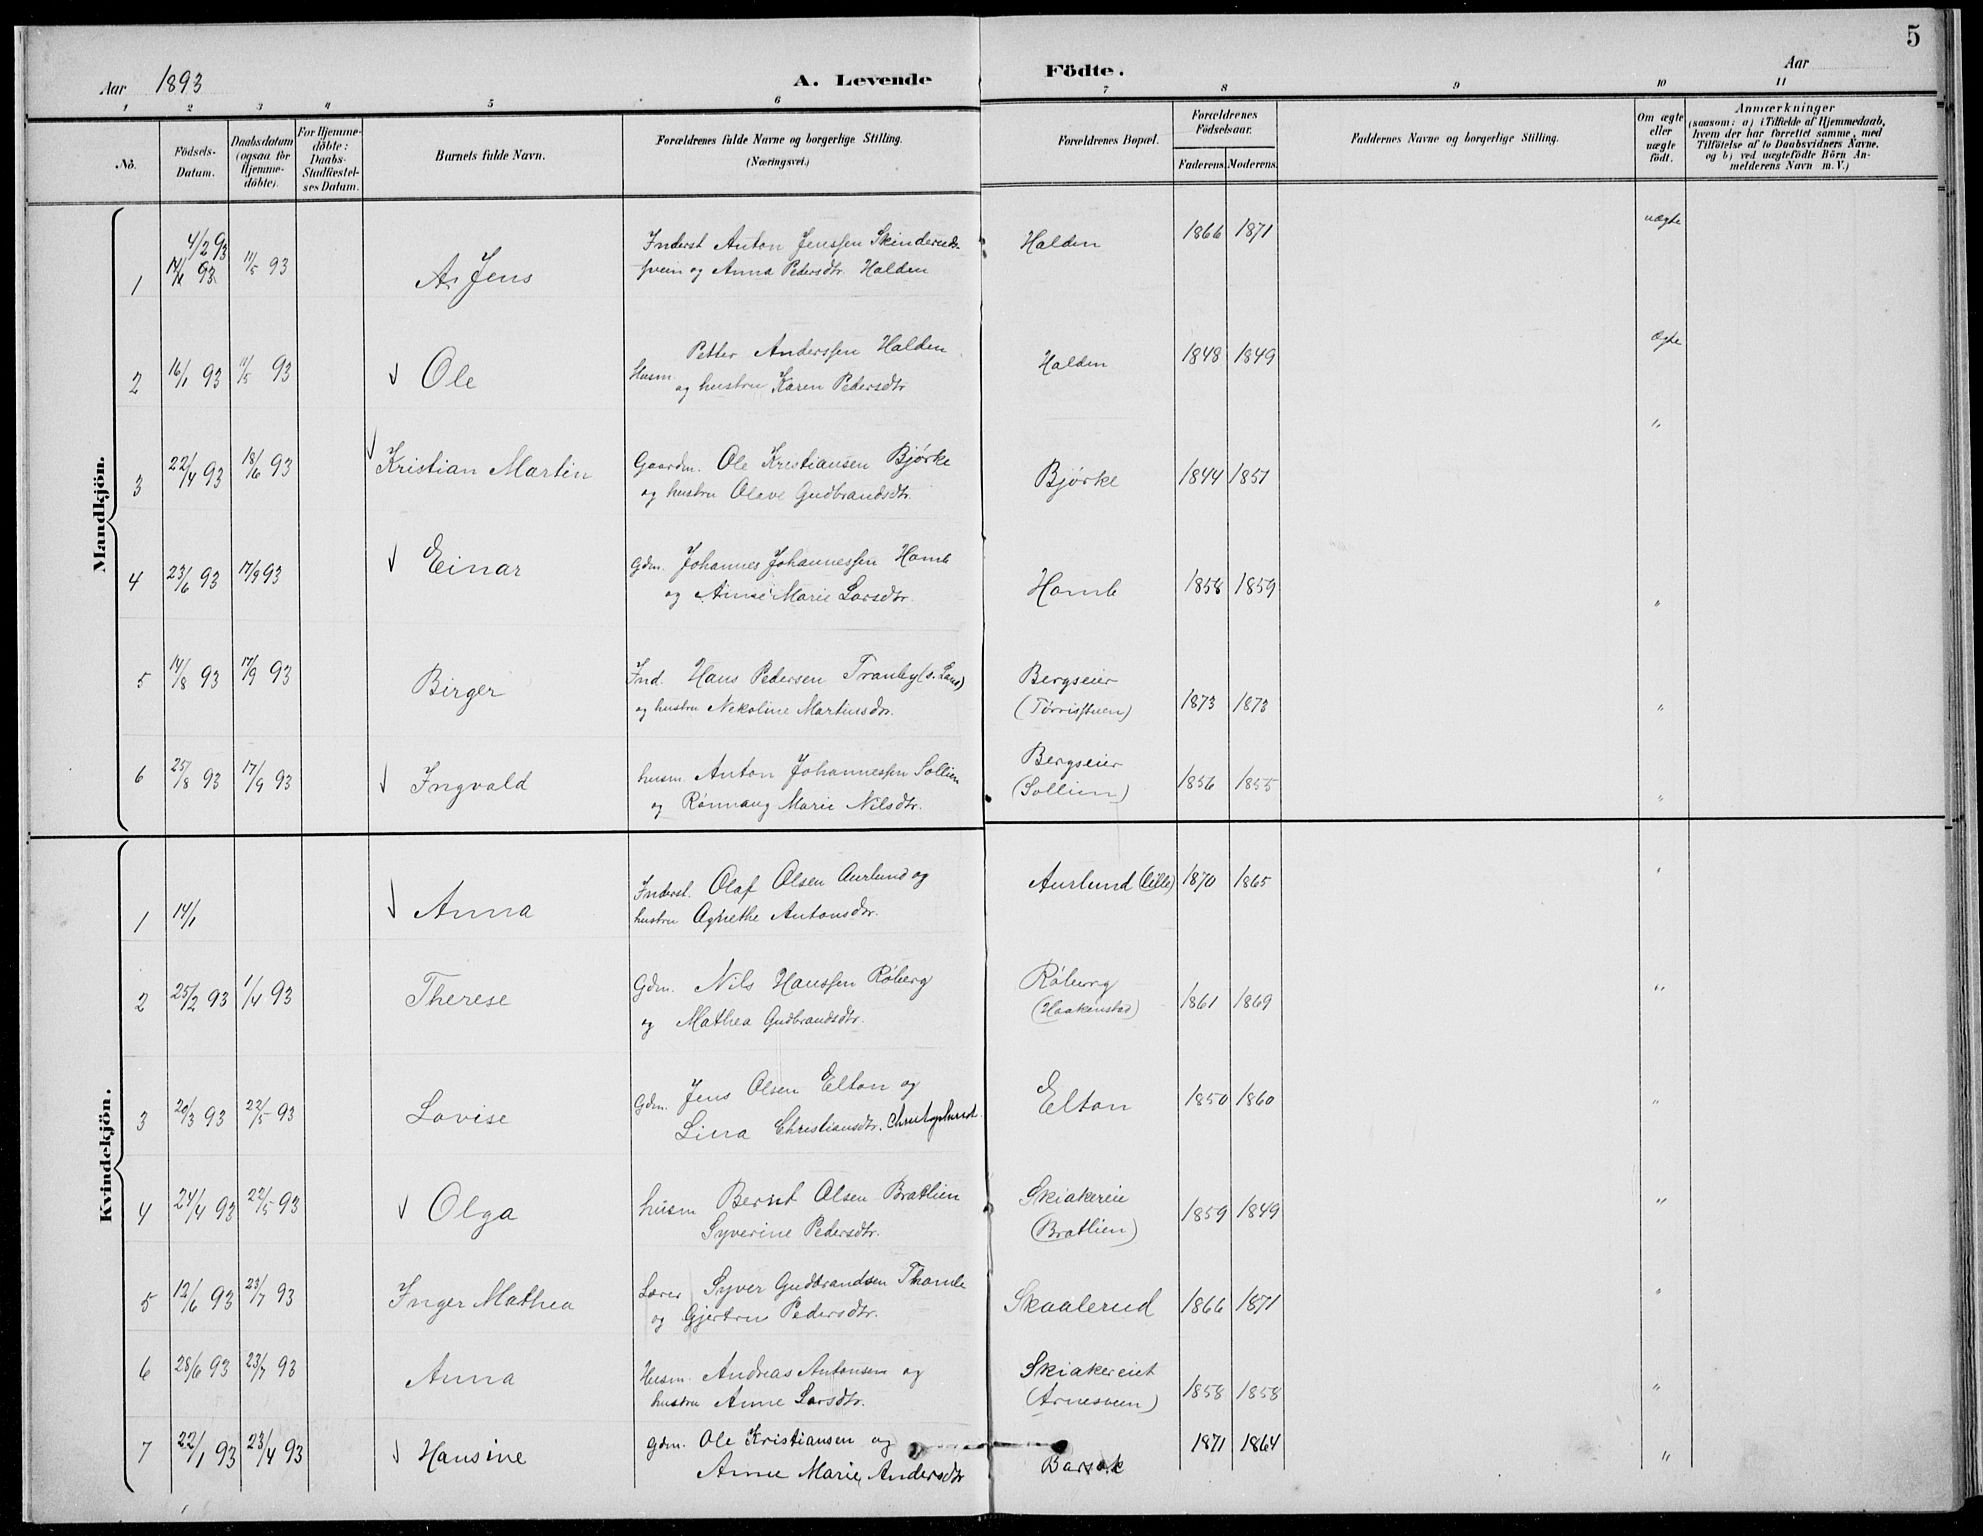 5
Aar 1893 A. Levende Födte. Aar
1 2 3 4 5 6 7 8 9 10 11
No.
Födsels-Datum.
Daabsdatum (ogsaa for Hjemme-döbte).
For Hjemme-döbte: Daabs-Stadfæstel-ses Datum.
Barnets fulde Navn.
Forældrenes fulde Navne og borgerlige Stilling.
(Næringsvei.)
Forældrenes Bopæl.
Forældrenes Födselsaar.
Faderens. Moderens.
Faddernes Navne og borgerlige Stilling.
Om ægte eller uægte födt.
Anmærkninger
(saasom: a) i Tilfælde af Hjemmedaab,
hvem der har forrettet samme, med
Tilföielse af to Daabsvidners Navne,
og b) ved uægtefödte Börn An-
melderens Navn m. V.)
Mandkjön.
1 4/2 93 11/5 93 Jens Inderst Anton Jenssen Halden 1866 1871 uægte
og Anna Pedersdtr. Halden
2 16/1 93 11/5 93 Ole Husm. Petter Anderssen Halden Halden 1848 1849 Ægte
og hustru Karen Pedersdtr
3 22/4 93 18/6 93 Kristian Martin Gaardm. Ole Kristiansen Bjørke Bjørke 1844 1851 "
og hustru Olave Gudbrandsdtr.
4 23/6 93 17/9 93 Einar Gdm. Johannes Johannessen Homb Homb 1858 1859 "
og Anne Marie Larsdtr.
5 14/8 93 17/9 93 Birger Ind. Hans Pedersen Tranby (s. Land) Bergseier 1873 1873 "
og hustru Nekoline Martinsdtr. (Tørrisstuen)
6 25/8 93 17/9 93 Ingvald husm. Anton Johannessen Sollien Bergseier 1856 1855 "
og Rønnaug Marie Nilsdtr. (Sollien)
Kvindekjön.
1 14/1 Anna Inderst. Olaf Olsen Aurlund og Aurlund (lille) 1870 1865 "
hustru Agnethe Antonsdtr.
2 25/2 93 1/4 93 Therese Gdm. Nils Hanssen Røberg Røberg 1861 1869 "
og Mathea Gudbrandsdtr. (Haakenstad)
3 20/3 93 22/5 93 Lovise Gdm. Jens Olsen Elton og Elton 1850 1860 "
Lina Christiansdtr.
4 24/4 93 22/5 93 Olga husm Bernt Olsen Bratlien Skiakereie 1859 1849 "
Syverine Pedersdtr. (Bratlien)
5 12/6 93 23/7 93 Inger Mathea Lærer Syver Gudbrandsen Thomle Skaalerud 1866 1871 "
og Gjertru Pedersdtr.
6 28/6 93 23/7 93 Anna Husm. Andreas Antonsen og Skiakereiet 1858 1858 "
hustru Anne Larsdtr. (Arnesveen)
7 22/1 93 23/4 93 Hansine Gdm. Ole Kristiansen og Barsok 1871 1864 "
Anne Marie Andersdtr